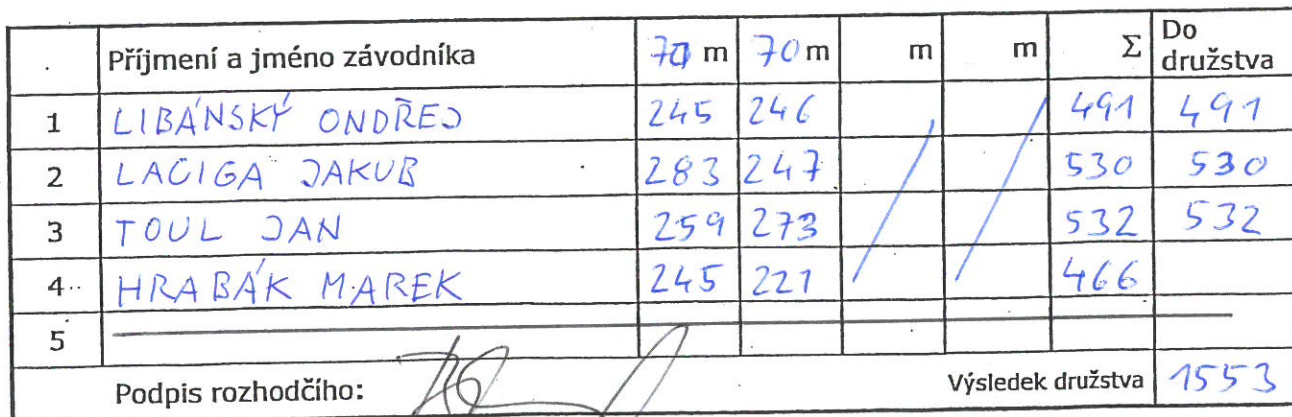 Příjmení a jméno závodníka 70 m 70 m m m Σ Do družstva
1 LIBÁNSKÝ ONDŘEJ 245 246 491 491
2 LACIGA JAKUB 283 247 530 530
3 TOUL JAN 259 273 532 532
4 HRABÁK MAREK 245 221 466
5
Podpis rozhodčího: Výsledek družstva 1553